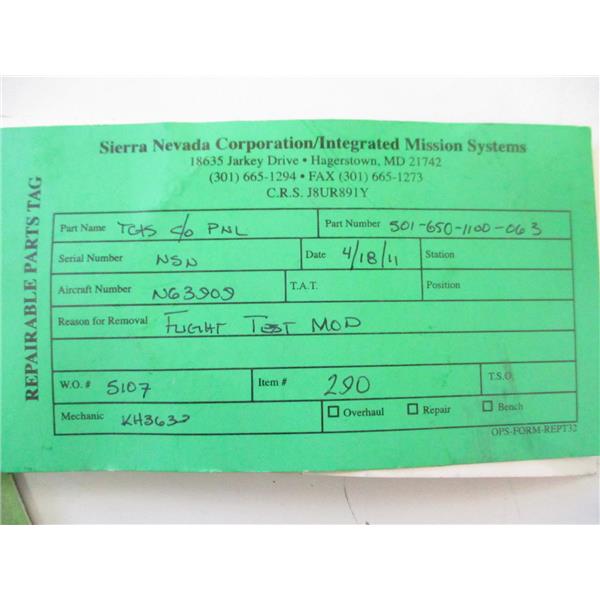 REPAIRABLE PARTS TAG
Sierra Nevada Corporation/Integrated Mission Systems
18635 Jarkey Drive • Hagerstown, MD 21742
(301) 665-1294 • FAX (301) 665-1273
C.R.S. J8UR891Y
Part Name TGTS C/O PNL Part Number 501-650-1100-063
Serial Number NSN Date 4/18/11 Station
Aircraft Number N63909 T.A.T. Position
Reason for Removal FLIGHT TEST MOD
W.O. # 5107 Item # 290 T.S.O.
Mechanic KH3632 Overhaul Repair Bench
OPS-FORM-REPT32